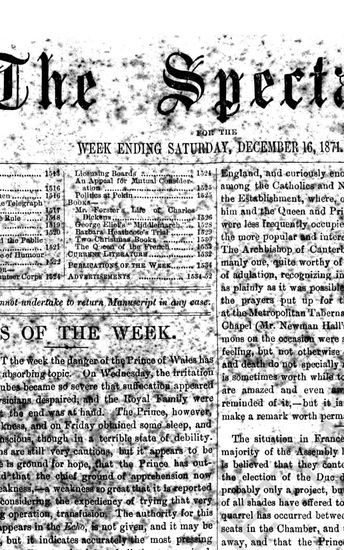 The Specta
FOR THE
WEEK ENDING SATURDAY, DECEMBER 16, 1871.
1513
1516
1516
the Telegraph
1517
Role
1518
1519
1520
d the Public
e of Humour
unteer Corps 1524
Licensing Boards 1524
An Appeal for Mutual Consider-
ation 1525
Politics at Pekin
BOOKS—
Mr. Forster's Life of Charles
Dickens 1526
George Eliot's Middlemarch
Barbara Heathcote's Trial
Two Christmas Books
The Queen of the French
CURRENT LITERATURE 1532
PUBLICATIONS OF THE WEEK 1534
ADVERTISEMENTS 1534-52
nnot undertake to return Manuscript in any case.
S OF THE WEEK.
T the week the danger of the Prince of Wales has
absorbing topic. On Wednesday, the irritation
tubes became so severe that suffocation appeared
sicians despaired, and the Royal Family were
t the end was at hand. The Prince, however,
kness, and on Friday obtained some sleep, and
nscious, though in a terrible state of debility.
ns are still very cautious, but it appears to be
e is ground for hope, that the Prince has out-
d that the chief ground of apprehension now
eakness,—a weakness so great that it is reported
considering the expediency of trying that very
g operation, transfusion. The authority for this
appears in the Echo, is not given, and it may be
but it indicates accurately the most pressing
England, and curiously eno
among the Catholics and N
the Establishment, where, o
him and the Queen and Pri
were less frequently occupie
the more popular and inter
The Archbishop of Canterb
manly one, quite worthy of
of adulation, recognizing in
as plainly as it was possible
the prayers put up for t
at the Metropolitan Taberna
Chapel (Mr. Newman Hall'
mons on the occasion were s
feeling, but not otherwise
and death do not specially
is sometimes worth while to
are amazed and even am
reminded of it,—but it is
make a remark worth perm
The situation in France
majority of the Assembly
is believed that they conte
the election of the Duc
probably only a project, but
of all shades have offered to
quarrel has occurred betwee
seats in the Chamber, and
away, and that the Princes